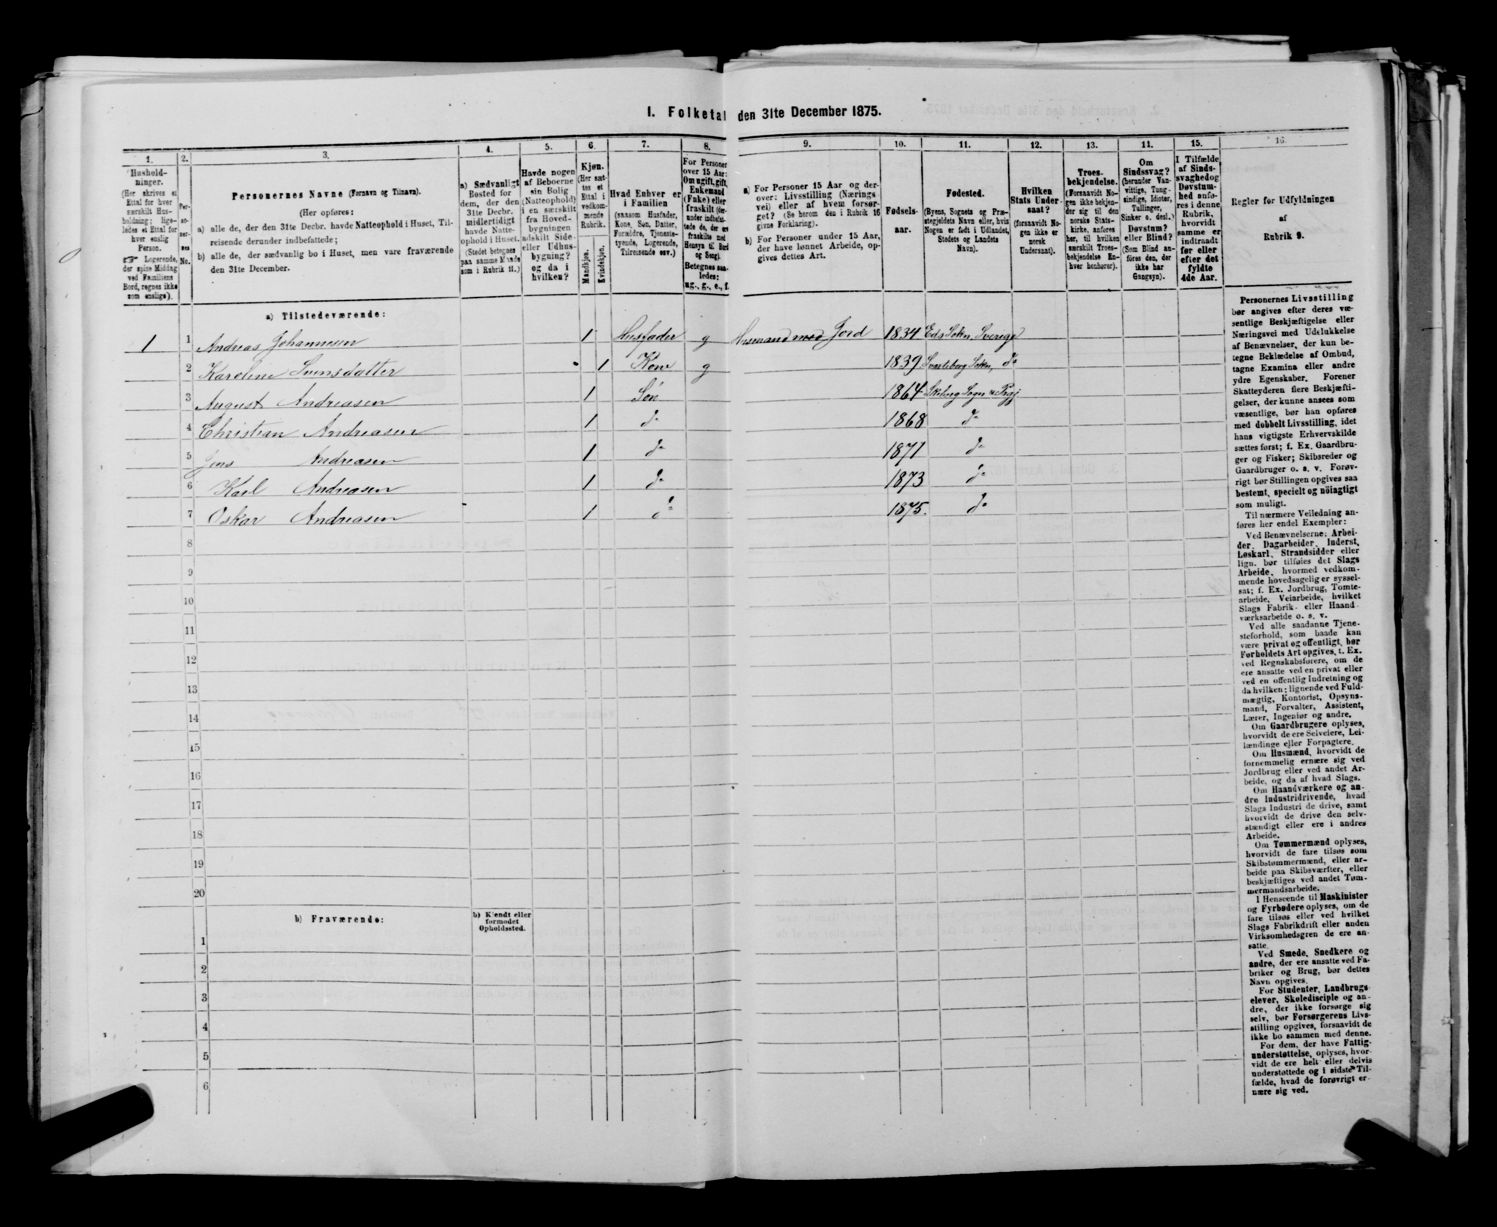 I. Folketal den 31te December 1875.
1. 2. 3. 4. 5. 6. 7. 8. 9. 10. 11. 12. 13. 11. 15. 16.
Husholdninger.
(Her skrives et Ettal for hver særskilt Husholdning; ligeledes et Ettal for hver enslig Person.
☞ Logerende, der spise Middag ved Familiens Bord, regnes ikke som enslige).
Personernes No.
Personernes Navne (Fornavn og Tilnavn).
(Her opføres:
a) alle de, der den 31te Decbr. havde Natteophold i Huset, Tilreisende derunder indbefattede;
b) alle de, der sædvanlig bo i Huset, men vare fraværende den 31te December.
a) Sædvanligt Bosted for dem, der den 31te Decbr. midlertidigt havde Natteophold i Huset.
(Stedet betegnes paa samme Maade som i Rubrik 11.)
Havde nogen af Beboerne sin Bolig (Natteophold) i en særskilt fra Hovedbygningen adskilt Side- eller Udhusbygning? og da i hvilken?
Kjøn.
(Her sættes et Ettal i vedkommende Rubrik.
Mandkjøn.
Kvindekjøn.
Hvad Enhver er i Familien
(saasom Husfader, Kone, Søn, Datter, Forældre, Tjenestetyende, Logerende, Tilreisende osv.)
For Personer over 15 Aar: Om ugift, gift, Enkemand (Enke) eller fraskilt
Betegnes saaledes: ug., g., e., f.
a) For Personer 15 Aar og derover: Livsstilling (Næringsvei) eller af hvem forsørget? (Se herom den i Rubrik 16 givne Forklaring).
b) For Personer under 15 Aar, der have lønnet Arbeide, opgives dettes Art.
Fødselsaar.
Fødested.
(Byens, Sognets og Præstegjeldets Navn eller, hvis Nogen er født i Udlandet, Stedets og Landets Navn).
Hvilken Stats Undersaat?
(forsaavidt Nogen ikke er norsk Undersaat).
Troesbekjendelse.
(Forsaavidt Nogen ikke bekjender sig til den norske Statskirke, anføres her, til hvilken særskilt Troesbekjendelse Enhver henhører).
Om Sindssvag?
(herunder Vanvittige, Tungsindige, Idioter, Tullinger, Sinker o. desl.)
Døvstum? eller Blind?
(Som Blind anføres den, der ikke har Gangsyn).
I Tilfælde af Sindssvaghed og Døvstumhed anføres i denne Rubrik, hvorvidt samme er indtraadt før eller efter det fyldte 4de Aar.
Regler for Udfyldningen af Rubrik 9.
a) Tilstedeværende:
1 1 Andreas Johannesen 1 Husfader g Husmand med Jord 1834 Eds Sokn, Sverige
2 Karoline Svensdatter 1 Kone g 1839 Svarteborg Sokn, do
3 August Andreasen 1 Søn 1864
4 Christian Andreasen 1 do 1868 do
5 Jens Andreasen 1 do 1871 do
6 Karl Andreasen 1 do 1873 do
7 Oskar Andreasen 1 do 1875. do
8
9
10
11
12
13
14
15
16
17
18
19
20
b) Fraværende:
b) Kjendt eller formodet Opholdssted.
1
2
3
4
5
6
Personernes Livsstilling
bør angives efter deres væ-
sentlige Beskjæftigelse eller
Næringsvei med Udelukkelse
af Benævnelser, der kun be-
tegne Beklædelse af Ombud,
tagne Examina eller andre
ydre Egenskaber. Forener
Skatteyderen flere Beskjæfti-
gelser, der kunne ansees som
væsentlige, bør han opføres
med dobbelt Livsstilling, idet
hans vigtigste Erhvervskilde
sættes først; f. Ex. Gaardbru-
ger og Fisker; Skibsreder og
Gaardbruger o. s. v. Forøv-
rigt bør Stillingen opgives saa
bestemt, specielt og nöiagtigt
som muligt.
Til nærmere Veiledning an-
føres her endel Exempler:
Ved Benævnelserne: Arbei-
der, Dagarbeider, Inderst,
Løskarl, Strandsidder eller
lign. bør tilføies det Slags
Arbeide, hvormed vedkom-
mende hovedsagelig er syssel-
sat; f. Ex. Jordbrug, Tomte-
arbeide, Veiarbeide, hvilket
Slags Fabrik- eller Haand-
værksarbeide o. s. v.
Ved alle saadanne Tjene-
steforhold, som baade kan
være privat og offentligt, bør
Forholdets Art opgives, t. Ex.
ved Regnskabsførere, om de
ere ansatte ved en privat eller
ved en offentlig Indretning og
da hvilken; lignende ved Fuld-
mægtig, Kontorist, Opsyns-
mand, Forvalter, Assistent,
Lærer, Ingeniør og andre.
Om Gaardbrugere oplyses,
hvorvidt de ere Selveiere, Lei-
lændinge eller Forpagtere.
Om Husmænd, hvorvidt de
fornemmelig ernære sig ved
Jordbrug eller ved andet Ar-
beide, og da af hvad Slags.
Om Haandværkere og an-
dre Industridrivende, hvad
Slags Industri de drive, samt
hvorvidt de drive den selv-
stændigt eller ere i andres
Arbeide.
Om Tømmermænd oplyses,
hvorvidt de fare tilsøs som
Skibstømmermænd, eller ar-
beide paa Skibsværfter, eller
beskjæftiges ved andet Tøm-
mermandsarbeide.
I Henseende til Maskinister
og Fyrbødere oplyses, om de
fare tilsøs eller ved hvilket
Slags Fabrikdrift eller anden
Virksomhedsgren de ere an-
satte.
Ved Smede, Snedkere og
andre, der ere ansatte ved Fa-
briker og Brug, bør dettes
Navn opgives.
For Studenter, Landbrugs-
elever, Skoledisciple og an-
dre, der ikke forsørge sig
selv, bør Forsørgerens Livs-
stilling opgives, forsaavidt de
ikke bo sammen med denne.
For dem, der have Fattig-
understøttelse, oplyses, hvor-
vidt de ere helt eller delvis
understøttede og i sidste Til-
fælde, hvad de forøvrigt er-
nære sig ved.